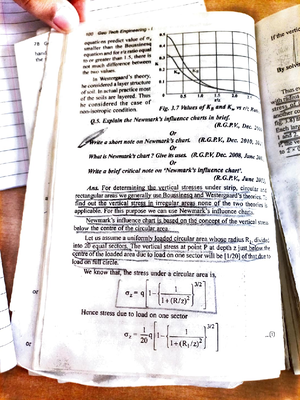 100 Geo Tech Engineering - I
equations predict value of σz
smaller than the Boussinesq
equation and for r/z ratio equal
to or greater than 1.5, there is
not much difference between
the two values
In Westergaard's theory,
he considered a layer structure
of soil. In actual practice most
of the soils are layered. Thus
he considered the case of
non-isotropic condition.
Fig. 3.7 Values of KB and Kw vs r/z
Q.5. Explain the Newmark's influence charts in brief.
(R.G.P.V., Dec.
Or
Write a short note on Newmark's chart. (R.G.P.V., Dec. 2010,
Or
What is Newmark's chart ? Give its uses. (R.G.P.V., Dec. 2008, June
Or
Write a brief critical note on 'Newmark's influence chart'.
(R.G.P.V., June
Ans. For determining the vertical stresses under strip, circular and
rectangular areas we generally use Boussinesq and Westergaard's theories. To
find out the vertical stress in irregular areas none of the two theories is
applicable. For this purpose we can use Newmark's influence charts.
Newmark's influence chart is based on the concept of the vertical stress
below the centre of the circular area.
Let us assume a uniformly loaded circular area whose radius R1, divided
into 20 equal sectors. The vertical stress at point P at depth z just below the
centre of the loaded area due to load on one sector will be [1/20] of that due to
load on full circle.
We know that, the stress under a circular area is,
σz = q [1 - {1 / 1 + (R/z)²}^3/2]
Hence stress due to load on one sector
σz = 1/20 q [1 - {1 / 1 + (R1/z)²}^3/2] ...(i)
or
or
If the vertic
By solvin